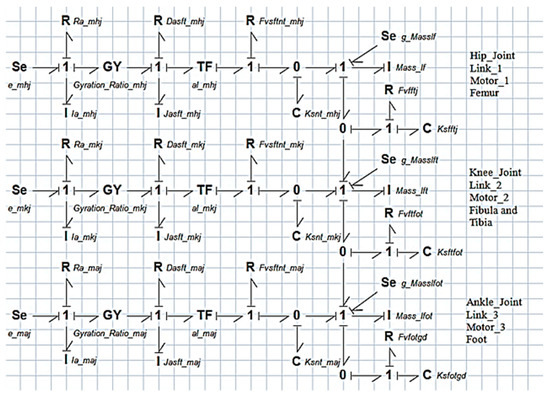 R Ra_mhj R Dasft_mhj R Fvsftnt_mhj
Se g_Masslf
Se 1 GY 1 TF 1 0 1 I Mass_lf
e_mhj Gyration_Ratio_mhj al_mhj
R Fvfftj
I Ia_mhj I Jasft_mhj C Ksnt_mhj
0 1 C Ksftj
Hip_Joint
Link_1
Motor_1
Femur
R Ra_mkj R Dasft_mkj R Fvsftnt_mkj
Se g_Masslft
Se 1 GY 1 TF 1 0 1 I Mass_lft
e_mkj Gyration_Ratio_mkj al_mkj
R Fvftfot
I Ia_mkj I Jasft_mkj C Ksnt_mkj
0 1 C Ksftfot
Knee_Joint
Link_2
Motor_2
Fibula and
Tibia
R Ra_maj R Dasft_maj R Fvsftnt_maj
Se g_Masslfot
Se 1 GY 1 TF 1 0 1 I Mass_lfot
e_maj Gyration_Ratio_maj al_maj
R Fvfotgd
I Ia_maj I Jasft_maj C Ksnt_maj
0 1 C Ksfotgd
Ankle_Joint
Link_3
Motor_3
Foot